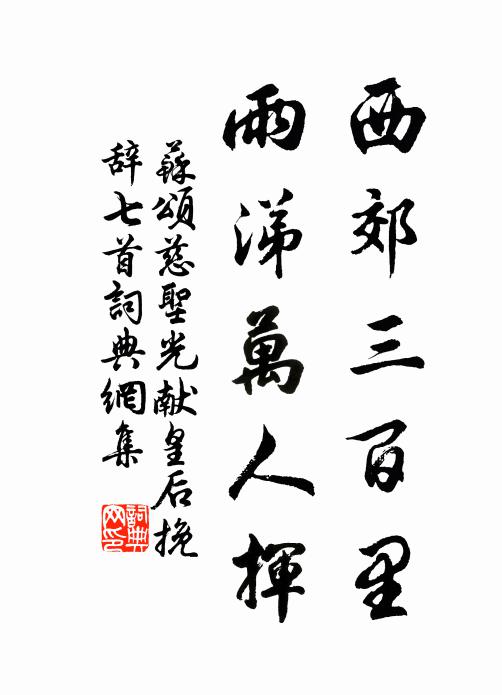 西郊三百里
雨涕萬人揮
蘇頌慈聖光献皇后挽
辞七首詞典網集
詞典网印